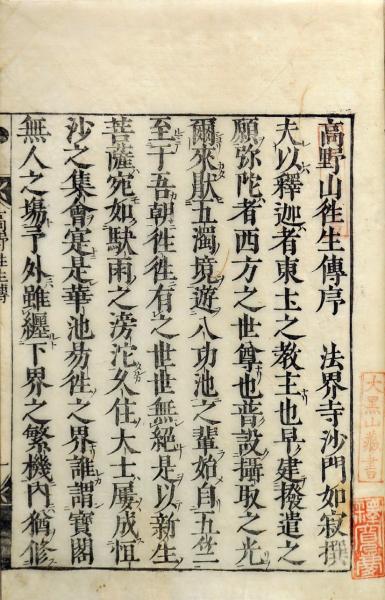 高野山徃生傳序　法界寺沙門如寂撰
夫以釋迦者東土之教主也早建撥遣之
願弥陀者西方之世尊也普設攝取之光
爾來猒五濁境遊八功池之輩始自五竺
至于吾朝徃徃有之世世無絶是以新生
菩薩宛如駃雨之滂沱久住大士屢成恒
沙之集會寔是華池易徃之界誰謂寶閣
無人之塲予外雖纒下界之繁機内猶修
高野徃生傳